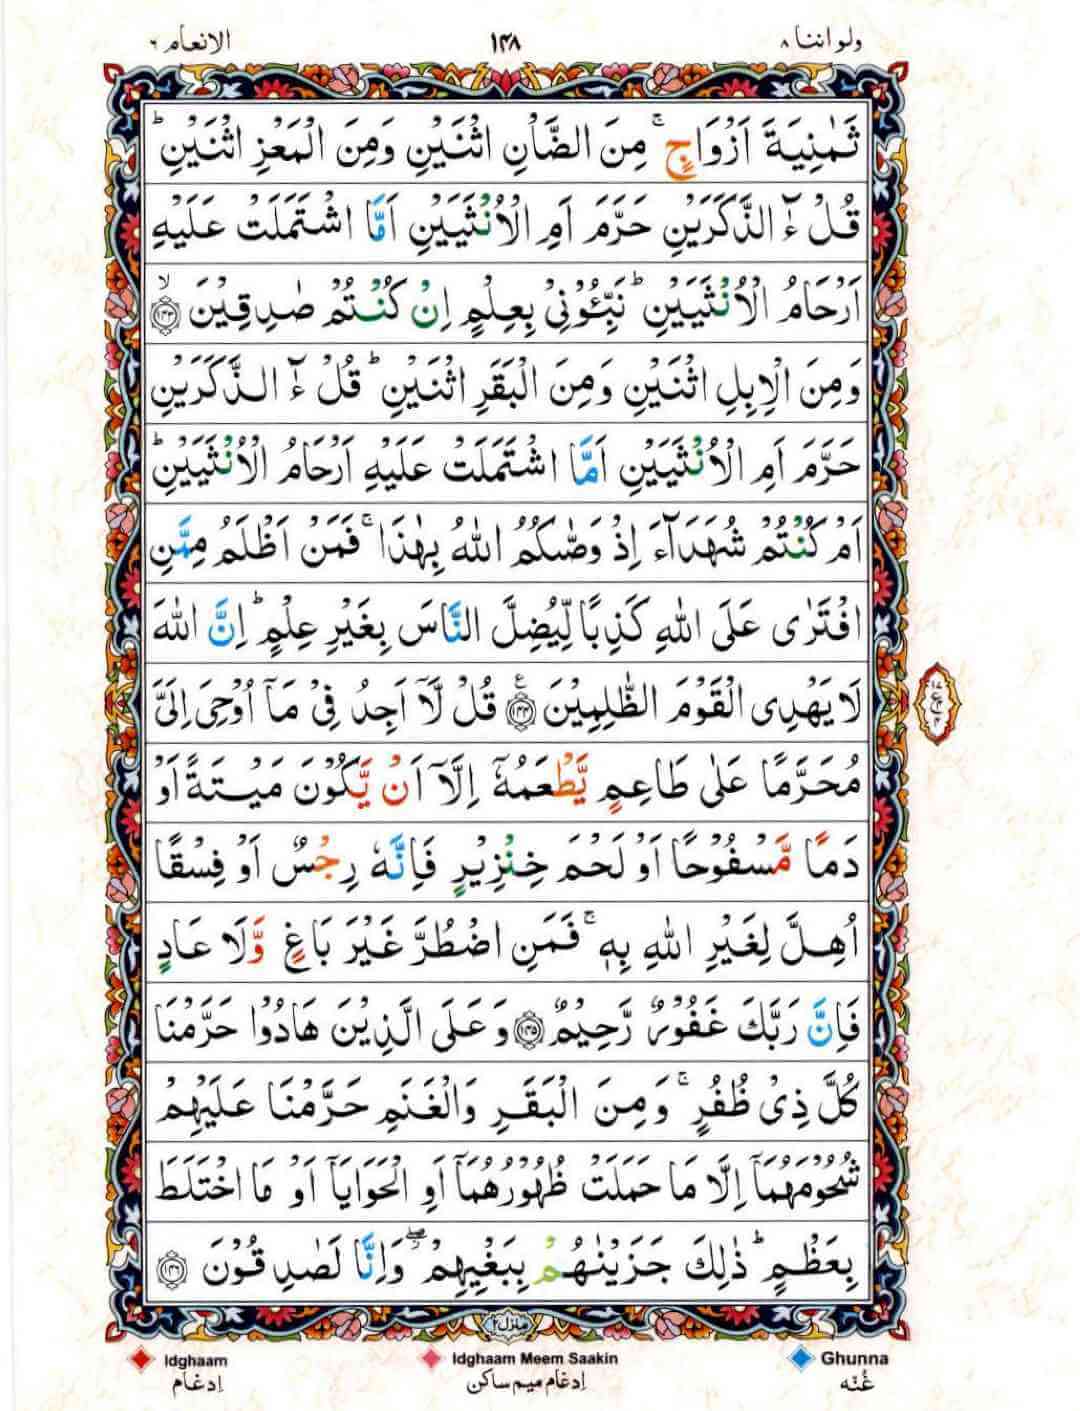 ولواننا ۸
۱۴۸
الانعام ۶
ثَمٰنِيَةَ اَزْوَاجٍ ۚ مِنَ الضَّاْنِ اثْنَيْنِ وَمِنَ الْمَعْزِ اثْنَيْنِ ؕ
قُلْ ءٰٓ الذَّكَرَيْنِ حَرَّمَ اَمِ الْاُنْثَيَيْنِ اَمَّا اشْتَمَلَتْ عَلَيْهِ
اَرْحَامُ الْاُنْثَيَيْنِ ؕ نَبِّـُٔوْنِيْ بِعِلْمٍ اِنْ كُنْتُمْ صٰدِقِيْنَ ۙ ﴿۱۴۳﴾
وَمِنَ الْاِبِلِ اثْنَيْنِ وَمِنَ الْبَقَرِ اثْنَيْنِ ؕ قُلْ ءٰٓ الذَّكَرَيْنِ
حَرَّمَ اَمِ الْاُنْثَيَيْنِ اَمَّا اشْتَمَلَتْ عَلَيْهِ اَرْحَامُ الْاُنْثَيَيْنِ ؕ
اَمْ كُنْتُمْ شُهَدَآءَ اِذْ وَصّٰىكُمُ اللّٰهُ بِهٰذَا ۚ فَمَنْ اَظْلَمُ مِمَّنِ
افْتَرٰى عَلَى اللّٰهِ كَذِبًا لِّيُضِلَّ النَّاسَ بِغَيْرِ عِلْمٍ ؕ اِنَّ اللّٰهَ
لَا يَهْدِى الْقَوْمَ الظّٰلِمِيْنَ ﴿۱۴۴﴾ ع قُلْ لَّاۤ اَجِدُ فِيْ مَاۤ اُوْحِيَ اِلَيَّ
مُحَرَّمًا عَلٰى طَاعِمٍ يَّطْعَمُهٗۤ اِلَّاۤ اَنْ يَّكُوْنَ مَيْتَةً اَوْ
دَمًا مَّسْفُوْحًا اَوْ لَحْمَ خِنْزِيْرٍ فَاِنَّهٗ رِجْسٌ اَوْ فِسْقًا
اُهِلَّ لِغَيْرِ اللّٰهِ بِهٖ ۚ فَمَنِ اضْطُرَّ غَيْرَ بَاغٍ وَّلَا عَادٍ
فَاِنَّ رَبَّكَ غَفُوْرٌ رَّحِيْمٌ ﴿۱۴۵﴾ وَعَلَى الَّذِيْنَ هَادُوْا حَرَّمْنَا
كُلَّ ذِيْ ظُفُرٍ ۚ وَمِنَ الْبَقَرِ وَالْغَنَمِ حَرَّمْنَا عَلَيْهِمْ
شُحُوْمَهُمَاۤ اِلَّا مَا حَمَلَتْ ظُهُوْرُهُمَاۤ اَوِ الْحَوَايَاۤ اَوْ مَا اخْتَلَطَ
بِعَظْمٍ ؕ ذٰلِكَ جَزَيْنٰهُمْ بِبَغْيِهِمْ ۖ وَاِنَّا لَصٰدِقُوْنَ ﴿۱۴۶﴾
منزل ۲
Idghaam
Idghaam Meem Saakin
Ghunna
اِدغام
اِدغام میم ساکن
غُنّه